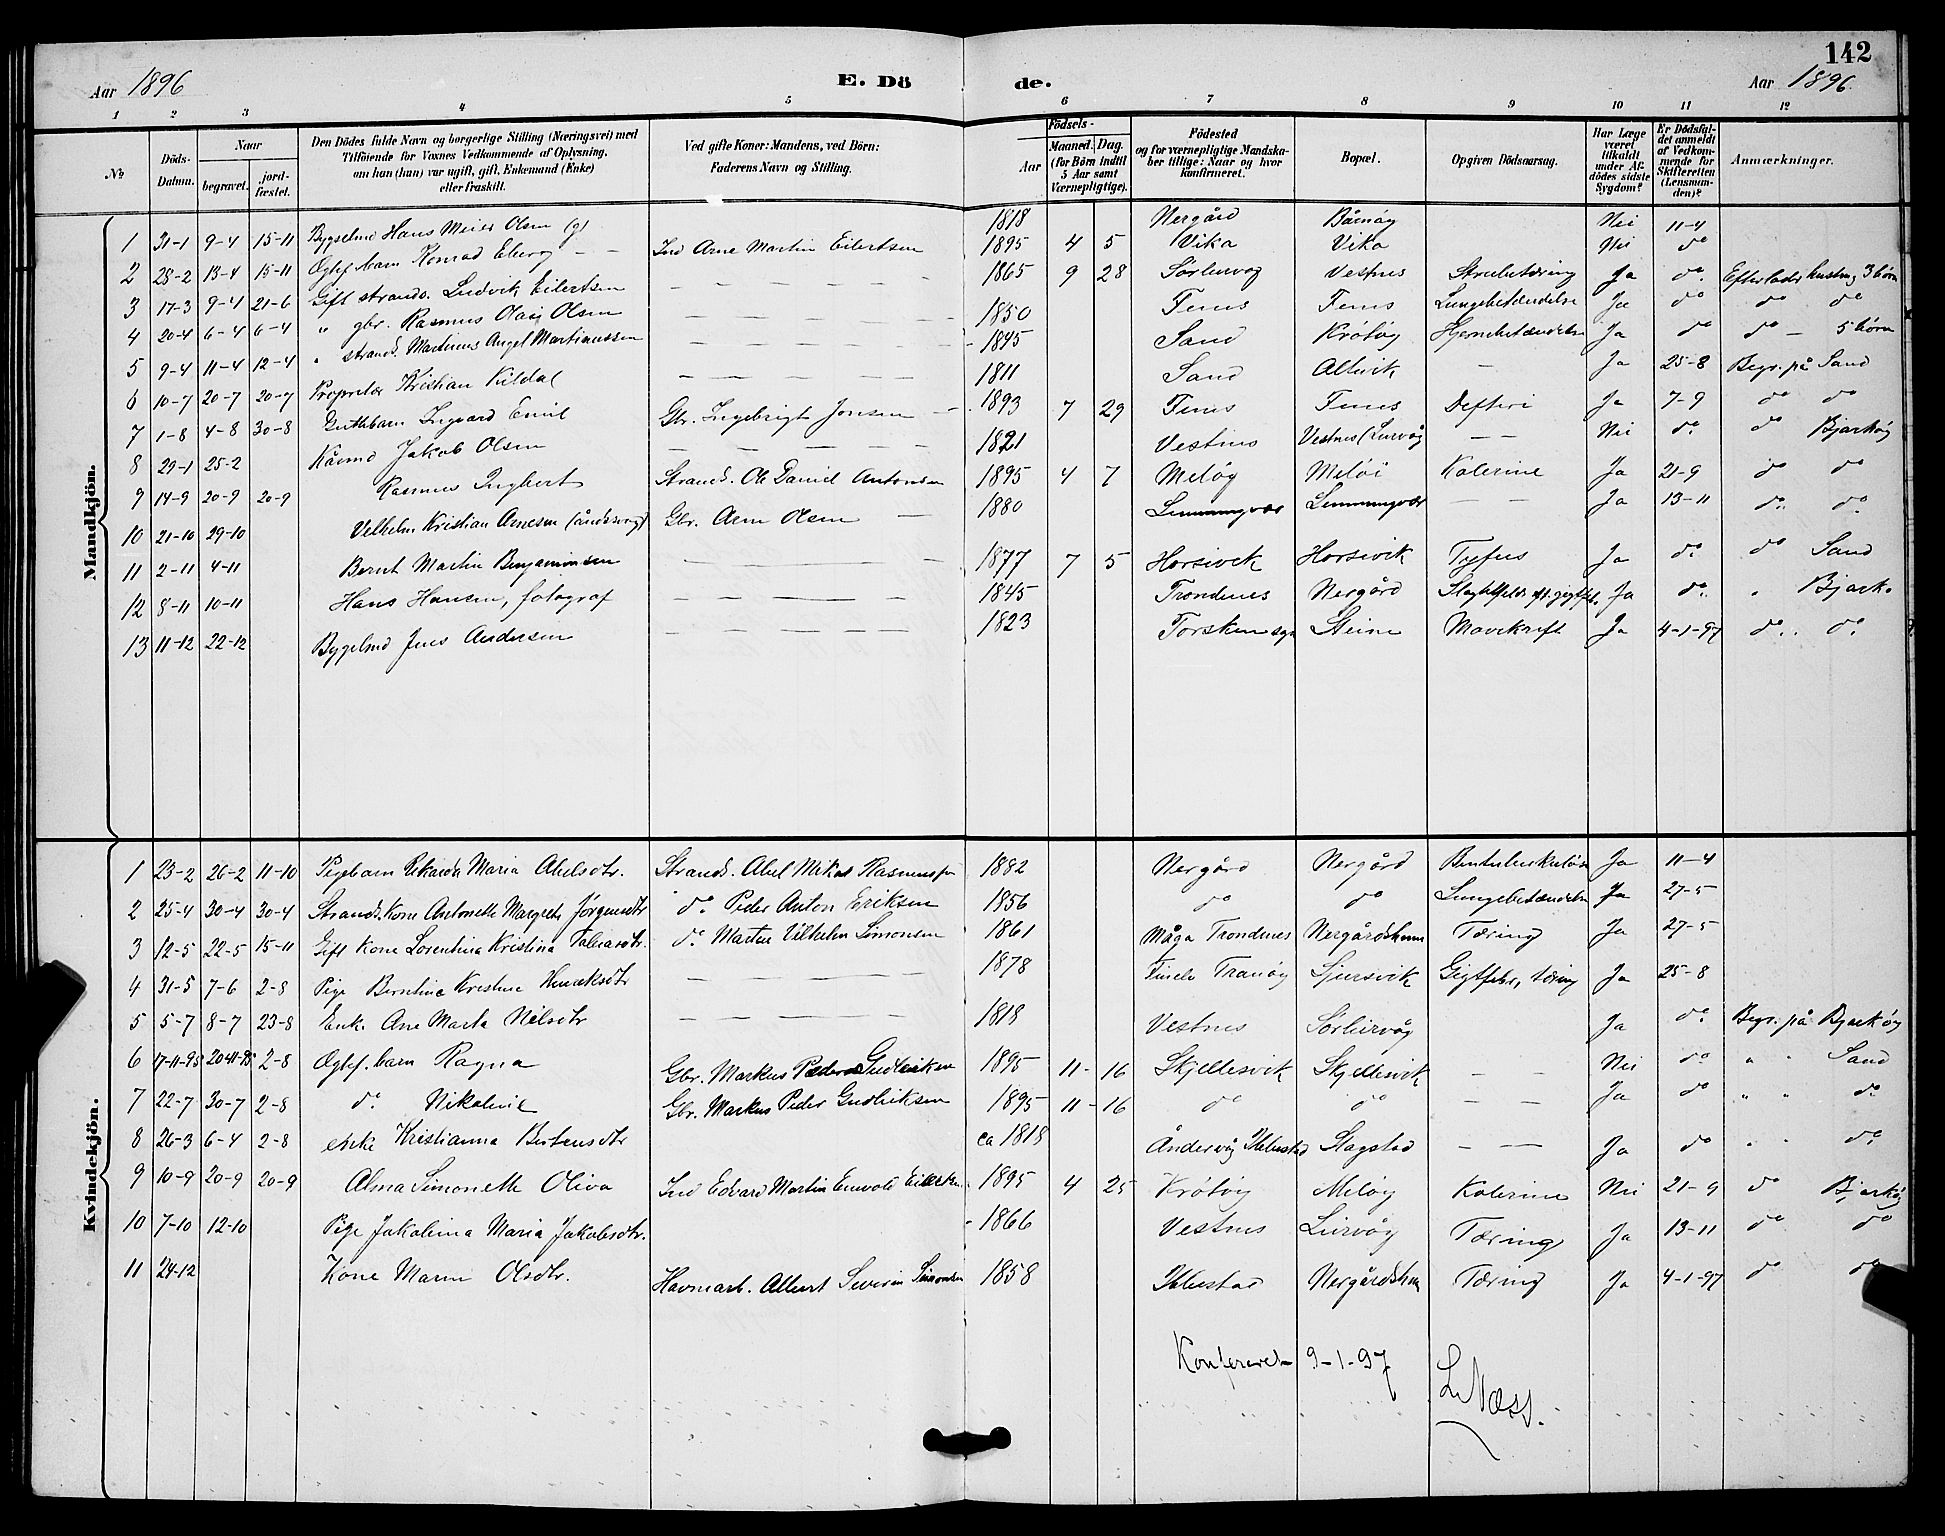 142
Aar 1896 E. Dö de. Aar 1896.
1 2 3 4 5 6 7 8 9 10 11 12
No
Döds-Datum.
Naar begravet. jordfæstet.
Den Dödes fulde Navn og borgerlige Stilling (Næringsvei) med Tilföiende for Voxnes Vedkommende af Oplysning, om han (hun) var ugift, gift, Enkemand (Enke) eller fraskilt.
Ved gifte Koner: Mandens, ved Börn: Faderens Navn og Stilling.
Födsels- Aar Maaned. Dag. (for Börn indtil 5 Aar samt Værnepligtige).
Födested og for værnepligtige Mandskaber tillige: Naar og hvor konfirmeret.
Bopæl.
Opgiven Dödsaarsag.
Har Læge været tilkaldt under Afdödes sidste Sygdom?
Er Dödsfaldet anmeldt af Vedkommende for Skifteretten (Lensmanden)?
Anmærkninger.
Mandkjön.
1 31-1 9-4 15-11 Bygselmd Hans Meier Olsen (g) 1818 Nergård Bårnöy Nei 11-4
2 28-2 13-4 15-11 Ægtef. barn Konrad Eberg Ind Arne Martin Eilertsen 1895 4 5 Vika Vika Nei do
3 17-3 9-4 21-6 Gift strands. Ludvik Eilertsen — — — 1865 9 28 Sörlurvög Vestnes Strubetæring Ja do Efterlader hustru, 3 börn
4 20-4 6-4 6-4 " gbr. Rasmus Olai Olsen — — — 1850 Fenes Fenes Lungebetændelse Ja do do do
5 9-4 11-4 12-4 " strands. Martinus Angel Martinussen — — — 1845 Sand Krötöy Hjernebetændelse Ja do do — 5 börn
6 10-7 20-7 20-7 Proprietær Kristian Kildal — — — 1811 Sand Altevik — Ja 25-8 Begr. på Sand
7 1-8 4-8 30-8 Guttebarn Ingvard Emil Gbr. Ingebrigt Jensen 1893 7 29 Fenes Fenes Difteri Ja 7-9 do do
8 29-1 25-2 Kårmd Jakob Olsen — — — 1821 Vestnes Vestnes (Lurvög — — Nei do do Bjarköy
9 14-9 20-9 20-9 Rasmus Ingbert Strands. Ole Daniel Antonsen 1895 4 7 Melöy Melöi Kolerine Ja 21-9 do do
10 21-10 29-10 Vilhelm Kristian Arnesen (åndssvag) Gbr. Arn Olsen — 1880 Lemmingvær Lemmingvær — — Ja 13-11 do do
11 2-11 4-11 Bernt Martin Benjaminsen — — — 1877 7 5 Horsevik Horsevik Tyfus Ja do do Sand
12 8-11 10-11 Hans Hansen, fotograf — — — 1845 Trondenes Nergård Ja do " Bjark.
13 11-12 22-12 Bygselmd Jens Andersen — — — 1823 Torsken sgn Steine Mavekreft Ja 4-1-97 do do
Kvindekjön.
1 23-2 26-2 11-10 Pigebarn Rikarda Maria Abelsdtr. Strands. Abel Mikal Rasmussen 1882 Nergård Nergård Bentuberkulöse Ja 11-4
2 25-4 30-4 30-4 Strands. Kone Antonette Margrete Jörgensdtr do Peder Anton Eriksen 1856 do do Lungebetændelse Ja 27-5
3 12-5 22-5 15-11 Gift kone Lorentina Kristina Tobiasdtr. do Martin Vilhelm Simonsen 1861 Måga Trondenes Nergårdshamn Tæring Ja 27-5
4 31-5 7-6 2-8 Pige Berntine Kristine Henriksdtr — — — 1878 Tranöy Sjursvik Gigtfeber, tæring Ja 25-8
5 5-7 8-7 23-8 Enk. Ane Marta Nilsdtr — — — 1818 Vestnes Sörlurvåg Ja do Begr. på Bjarköy
6 17-11-95 20-11-95 2-8 Ægtef. barn Ragna Gbr. Markus Peder Gudleiksen 1895 11-16 Skjellesvik Skjellesvik — — Nei do " " Sand
7 22-7 30-7 2-8 do Nikoline Gbr. Markus Peder Gudleiksen 1895 11-16 do do — — Ja do " " do
8 26-3 6-4 2-8 enke Kristianna Bertensdtr ca 1818 Åndervåg Ibbestad Slagstad — — Ja do " " do
9 10-9 20-9 20-9 Alma Simonette Oliva Ind Edvard Martin Enevold Eilertsen 1895 4 25 Krötöy Melöy Kolerine Nei 21-9 do Bjarköy
10 7-10 12-10 Pige Jakobina Maria Jakobsdtr. 1866 Vestnes Lurvög Tæring Ja 13-11 do do
11 24-12 Kone Maren Olsdtr. Havnearb. Albert Severin Simonsen 1858 Ibbestad Nergårdshamn Tæring Ja 4-1-97 do do
Konfereret 9-1-97 L. Næss.